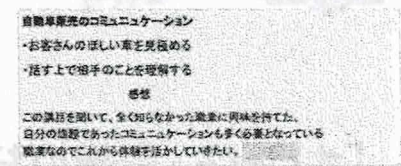 自動車販売のコミュニュケーション
・お客さんのほしい車を見極める
・話す上で相手のことを理解する
感想
この講話を聞いて、全く知らなかった職業に興味を持てた。
自分の課題であったコミュニュケーションも多く必要となっている
職業なのでこれから体験を活かしていきたい。